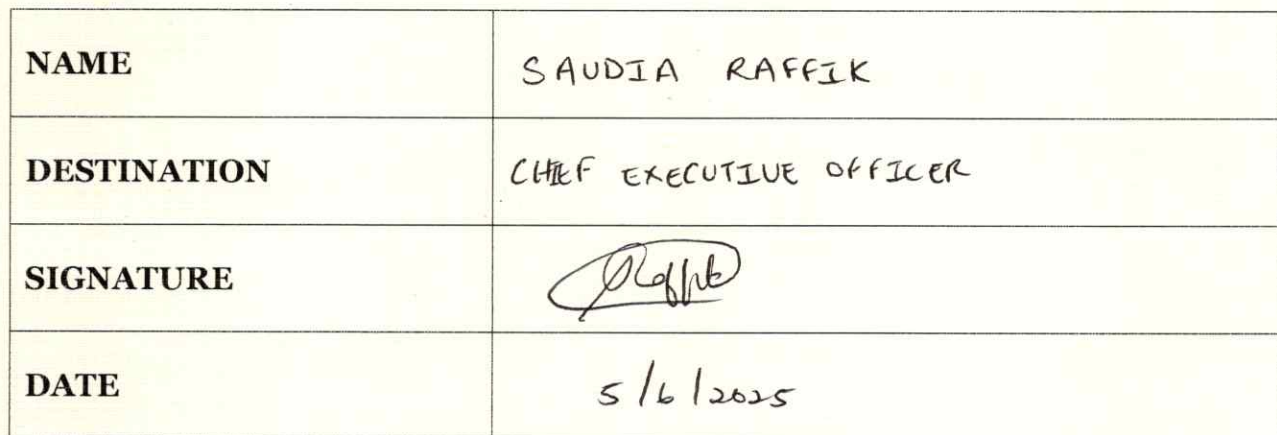 NAME SAUDIA RAFFIK
DESTINATION CHIEF EXECUTIVE OFFICER
SIGNATURE Raffik
DATE 5/6/2025